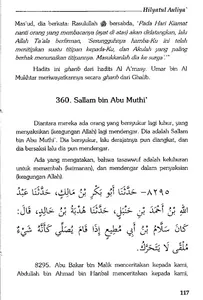 Hilyatul Auliya'
Mas'ud, dia berkata: Rasulullah ﷺ bersabda, "Pada Hari Kiamat
nanti orang yang membacanya (ayat di atas) akan didatangkan, lalu
Allah Ta'ala berfirman, 'Sesungguhnya hamba-Ku ini telah
menitipkan suatu titipan kepada-Ku, dan Akulah yang paling
berhak menunaikan titipannya. Masukkanlah dia ke surga'."
Hadits ini gharib dari hadits Al A'masy. Umar bin Al
Mukhtar meriwayatkannya secara gharib dari Ghalib.
360. Sallam bin Abu Muthi'
Diantara mereka ada orang yang bersyukur lagi luhur, yang
menyaksikan (keagungan Allah) lagi mendengar. Dia adalah Sallam
bin Abu Muthi'. Dia bersyukur, lalu derajatnya pun diangkat, dan
dia bersaksi lalu dia pun mendengar.
Ada yang mengatakan, bahwa tasawwuf adalah keluhuran
untuk menambah (keimanan), dan mendengar dalam penyaksian
(keagungan Allah).
٨٢٩٥- حَدَّثَنَا أَبُو بَكْرِ بْنُ مَالِكٍ، حَدَّثَنَا عَبْدُ
اللهِ بْنُ أَحْمَدَ بْنِ حَنْبَلٍ، حَدَّثَنَا هُدْبَةُ بْنُ خَالِدٍ، قَالَ:
كَانَ سَلَّامُ بْنُ أَبِي مُطِيعٍ إِذَا قَامَ يُصَلِّي كَأَنَّهُ شَيْءٌ
مُلْقًى لَا يَتَحَرَّكُ.
8295. Abu Bakar bin Malik menceritakan kepada kami,
Abdullah bin Ahmad bin Hanbal menceritakan kepada kami,
117